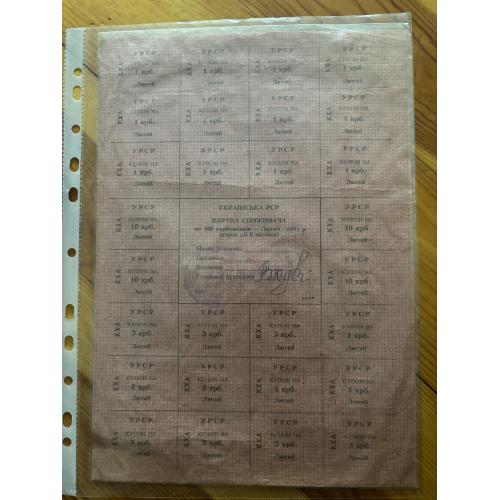 УРСР УРСР УРСР УРСР
КХА КУПОН НА КХА КУПОН НА КХА КУПОН НА КХА КУПОН НА
1 крб. 1 крб. 1 крб. 1 крб.
Лютий Лютий Лютий Лютий
УРСР УРСР УРСР УРСР
КХА КУПОН НА КХА КУПОН НА КХА КУПОН НА КХА КУПОН НА
1 крб. 1 крб. 1 крб. 1 крб.
Лютий Лютий Лютий Лютий
УРСР УРСР УРСР УРСР
КХА КУПОН НА КХА КУПОН НА КХА КУПОН НА КХА КУПОН НА
1 крб. 1 крб. 1 крб. 1 крб.
Лютий Лютий Лютий Лютий
УРСР
КХА КУПОН НА
10 крб.
Лютий
УРСР
КХА КУПОН НА
10 крб.
Лютий
УКРАЇНСЬКА РСР
КАРТКА СПОЖИВАЧА
на 100 карбованців — Лютий
Прізвище
УРСР
КХА КУПОН НА
10 крб.
Лютий
УРСР
КХА КУПОН НА
10 крб.
Лютий
УРСР УРСР УРСР УРСР
КХА КУПОН НА КХА КУПОН НА КХА КУПОН НА КХА КУПОН НА
3 крб. 3 крб. 3 крб. 3 крб.
Лютий Лютий Лютий Лютий
УРСР УРСР УРСР УРСР
КХА КУПОН НА КХА КУПОН НА КХА КУПОН НА КХА КУПОН НА
3 крб. 3 крб. 5 крб. 5 крб.
Лютий Лютий Лютий Лютий
УРСР УРСР УРСР УРСР
КХА КУПОН НА КХА КУПОН НА КХА КУПОН НА КХА КУПОН НА
5 крб. 5 крб. 5 крб. 5 крб.
Лютий Лютий Лютий Лютий